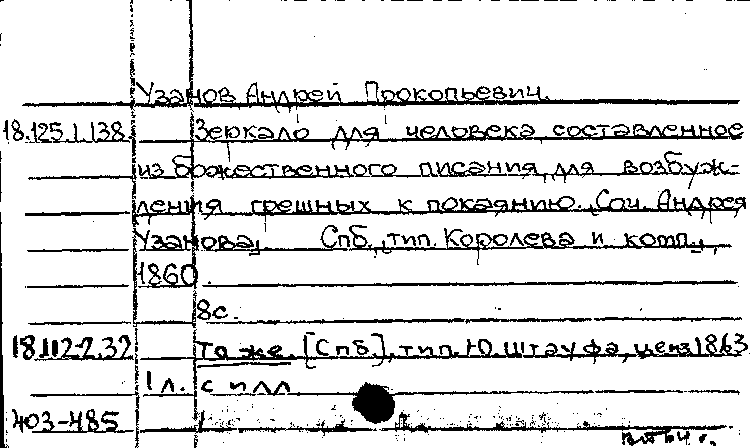 Узанов, Андрей Прокопьевич.
18.125.1.138. Зеркало для человека, составленное
из божественного писания, для возбуж-
дения грешных к покаянию. Соч. Андрея
Узанова, Спб., тип. Королева и комп.,
1860.
8с.
18.112.2.32 То же. [Спб.], тип. Ю. Штауфа, ценз 1863
1 л. с илл
403-485